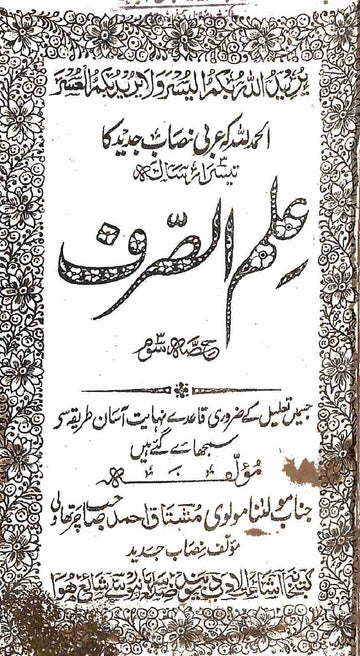 يُرِيْدُ اللّٰهُ بِكُمُ الْيُسْرَ وَلَا يُرِيْدُ بِكُمُ الْعُسْرَ
الحمد للہ کہ عربی نصاب جدید کا
تیسرا رسالہ
علم الصّرف
حصّہ سوم
جسمیں تعلیل کے ضروری قاعدے نہایت آسان طریقہ سے
سمجھائے گئے ہیں
مؤلّفہ
جناب مولٰنا مولوی مشتاق احمد صاحب چرتھاولی
مؤلف نصاب جدید
کتبخانہ اشاعت دیوبند ضلع سہارنپور سے شائع ہوا